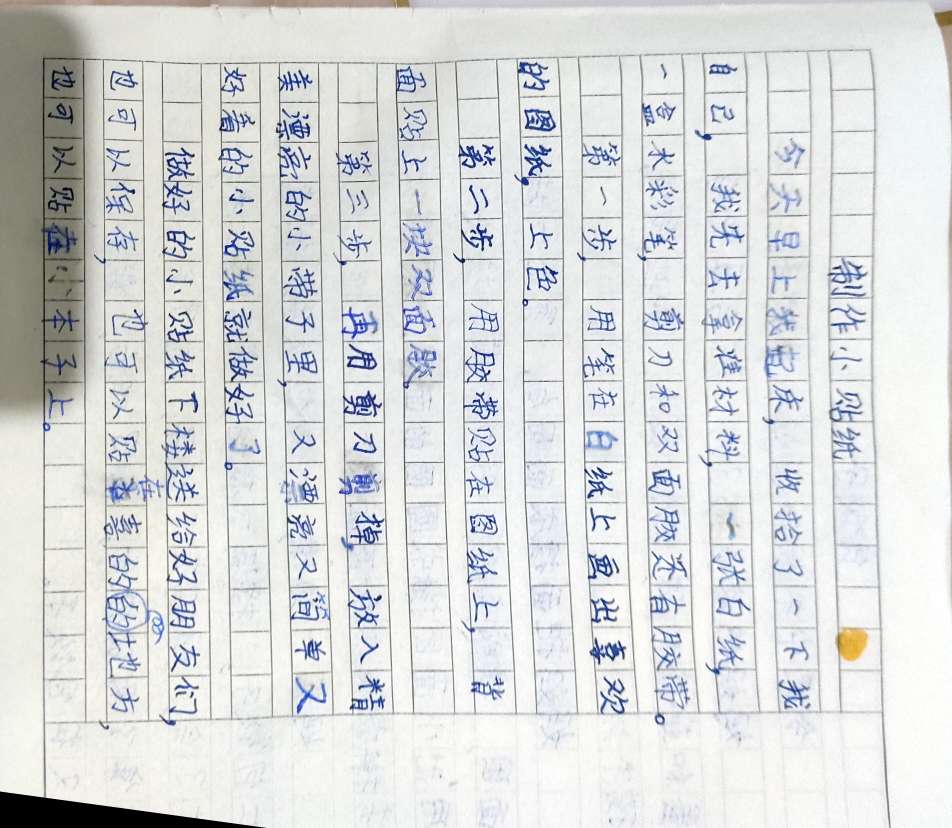 制作小贴纸
今天早上我起床，收拾了一下我
自己，我先去拿准材料，一张白纸，
一盒水彩笔，剪刀和双面胶还有胶带。
第一步，用笔在白纸上画出喜欢
的图纸，上色。
第二步，用胶带贴在图纸上，背
面贴上一块双面胶。
第三步，再用剪刀剪掉，放入精
美漂亮的小带子里，又漂亮又简单又
好看的小贴纸就做好了。
做好的小贴纸下楼送给好朋友们，
也可以保存，也可以贴在喜的的地方，
也可以贴在小本子上。